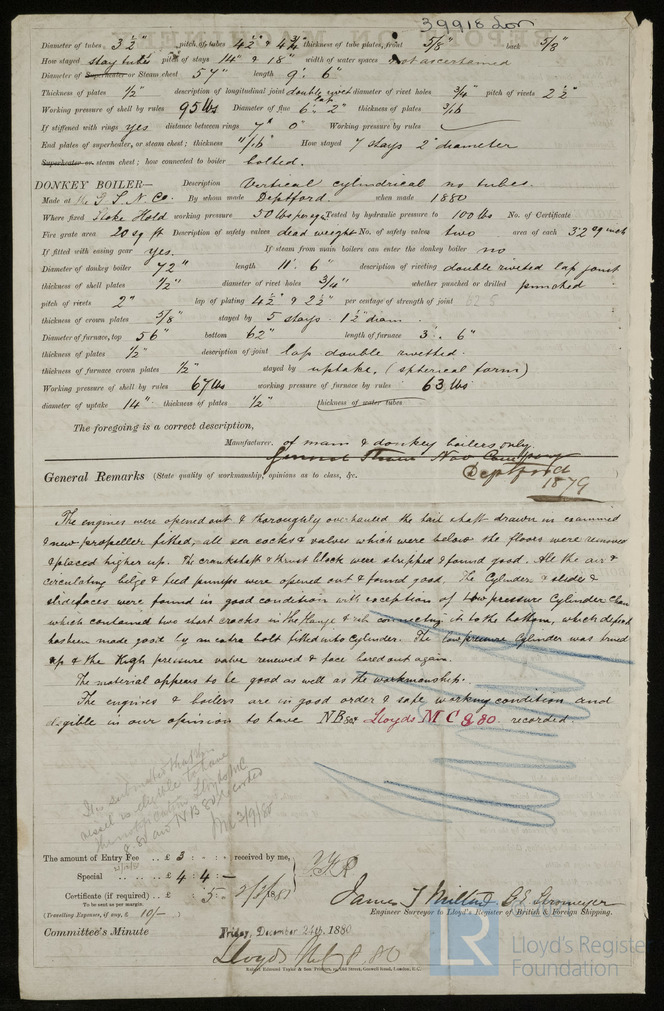 39918 Lon
Diameter of tubes 3½" pitch of tubes 4½" & 4¾" thickness of tube plates, front 5/8" back 5/8"
How stayed stay tubes pitch of stays 14" & 18" width of water spaces not ascertained
Diameter of Superheater or Steam chest 57" length 9' 6"
Thickness of plates ½" description of longitudinal joint double rivet lap diameter of rivet holes ¾" pitch of rivets 2½"
Working pressure of shell by rules 95 lbs Diameter of flue 6' 2" thickness of plates 9/16
If stiffened with rings yes distance between rings 7" 0" Working pressure by rules
End plates of superheater, or steam chest; thickness 11/16" How stayed 7 stays 2" diameter
Superheater or steam chest; how connected to boiler bolted.
DONKEY BOILER— Description Vertical cylindrical no tubes.
Made at the G S N Co. By whom made Deptford. when made 1880
Where fixed Stoke Hold working pressure 50 lbs per sq in Tested by hydraulic pressure to 100 lbs No. of Certificate
Fire grate area 20 sq ft Description of safety valves dead weight No. of safety valves two area of each 32 sq inch
If fitted with easing gear yes. If steam from main boilers can enter the donkey boiler no
Diameter of donkey boiler 72" length 11' 6" description of riveting double riveted lap joint
thickness of shell plates ½" diameter of rivet holes ¾" whether punched or drilled punched
pitch of rivets 2" lap of plating 4½" & 2½" per centage of strength of joint 62.5
thickness of crown plates 5/8" stayed by 5 stays 1½" diam.
Diameter of furnace, top 56" bottom 62" length of furnace 3'. 6"
thickness of plates ½" description of joint lap double rivetted.
thickness of furnace crown plates ½" stayed by uptake. (spherical form)
Working pressure of shell by rules 67 lbs working pressure of furnace by rules 63 lbs
diameter of uptake 14" thickness of plates ½" thickness of water tubes
The foregoing is a correct description,
Manufacturer. of main & donkey boilers only
General Steam Nav Company
Deptford
1879
General Remarks (State quality of workmanship, opinions as to class, &c. )
The engines were opened out & thoroughly overhauled the tail shaft drawn in examined
& new propeller fitted, all sea cocks & valves which were below the floors were removed
& placed higher up. The crankshaft & thrust block were stripped & found good. All the air &
circulating bilge & feed pumps were opened out & found good. The Cylinder & slides &
slidefaces were found in good condition with exception of Low pressure Cylinder
which contained two short cracks in the flange & rib connecting it to the bottom, which defect
has been made good by an extra bolt fitted into Cylinder. The low pressure Cylinder was trued
up & the High pressure valve renewed & face bared out again.
The material appears to be good as well as the workmanship.
The engines & boilers are in good order & safe working condition and
eligible in our opinion to have NB 80 Lloyds M C 9.80 recorded.
It is submitted that this
vessel is eligible to have
the notification Lloyds MC
9.80 and NB 80 recorded
The amount of Entry Fee .. £ 3 : - : - received by me,
Special .. .. .. £ 4 : 4 : -
Certificate (if required) .. £ : 5 : -
To be sent as per margin.
(Travelling Expenses, if any, £ 10/- )
James T Milton C.E. Stromeyer
Engineer Surveyor to Lloyd's Register of British & Foreign Shipping.
Committee's Minute Friday, December 24th, 1880
Lloyds MC 8.80
Robert Edmund Taylor & Son Printers, Old Street, Goswell Road, London, E.C.
LR
Lloyd's Register
Foundation